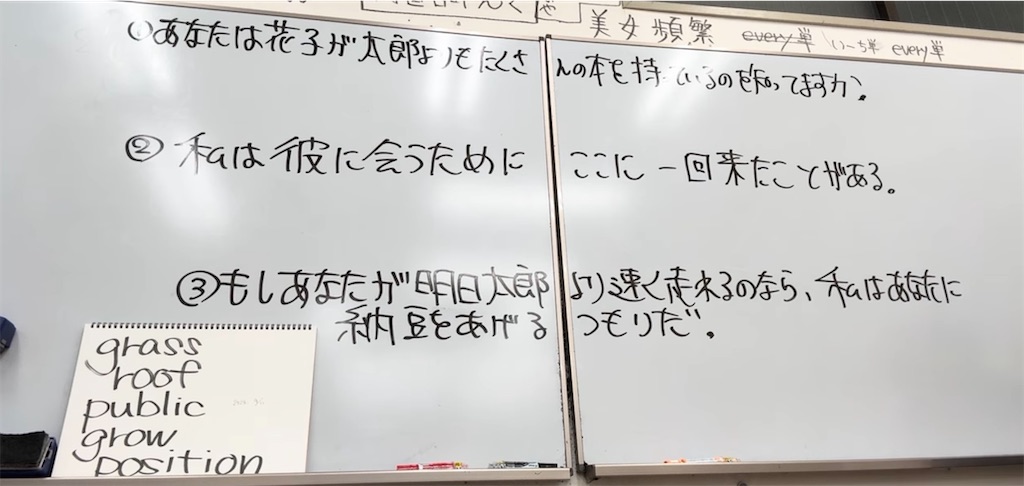 美女頻繁 every単 いーち単 every単
①あなたは花子が太郎よりもたくさんの本を持っているのを知ってますか?
②私は彼に会うために ここに一回来たことがある。
③もしあなたが明日太郎より速く走れるのなら、私はあなたに
納豆をあげるつもりだ。
grass
roof
public
grow
position